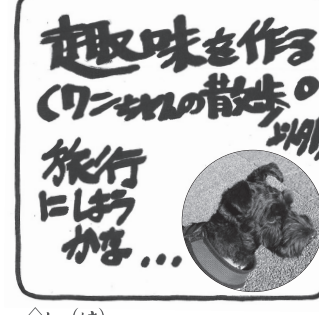 趣味を作る
(ワンちゃんの散歩。
以外
旅行
にしよう
かな...